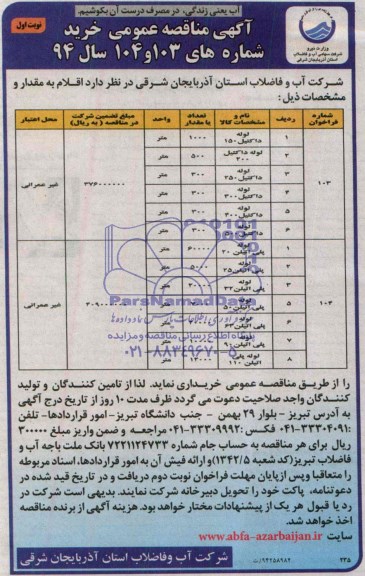 آب یعنی زندگی، در مصرف درست آن بکوشیم.
نوبت اول
آگهی مناقصه عمومی خرید
شماره های ۱۰۳ و ۱۰۴ سال ۹۴
وزارت نیرو
شرکت آب و فاضلاب استان آذربایجان شرقی در نظر دارد اقلام به مقدار و
مشخصات ذیل:
شماره فراخوان ردیف نام و مشخصات کالا تعداد یا مقدار واحد مبلغ تضمین شرکت در مناقصه (به ریال) محل اعتبار
۱۰۳ ۱ لوله داکتیل ۱۵۰ ۱۰۰۰ متر ۳۷۶۰۰۰۰۰۰ غیر عمرانی
۲ لوله داکتیل ۲۰۰ ۵۰۰ متر
۳ لوله ۳۰۰ متر
۴ لوله داکتیل ۳۰۰ ۳۰۰ متر
۵ لوله ۳۰۰ متر
۶ لوله ۳۰۰ متر
۱۰۴ ۱ لوله پلی اتیلن ۲۰ ۶۰۰۰۰ متر غیر عمرانی
۲ لوله پلی اتیلن ۲۵ متر
لوله پلی اتیلن ۳۲ متر
۵ لوله متر
۶ لوله پلی اتیلن ۶۳
لوله پلی اتیلن ۹۰ متر
۸ لوله پلی اتیلن ۱۱۰ ۱۳۰۰۰ متر
ParsNamadData
پایگاه اطلاع رسانی مناقصه و مزایده
۰۲۱-۸۸۳۴۹۶۷۰-۵
را از طریق مناقصه عمومی خریداری نماید. لذا از تامین کنندگان و تولید
کنندگان واجد صلاحیت دعوت می گردد ظرف مدت ۱۰ روز از تاریخ درج آگهی
به آدرس تبریز - بلوار ۲۹ بهمن - جنب دانشگاه تبریز - امور قراردادها- تلفن
:۰۴۱-۳۳۳۰۴۰۹۱ فکس: ۰۴۱-۳۳۳۰۹۹۹۲ مراجعه و ضمن واریز مبلغ ۳۰۰۰۰۰
ریال برای هر مناقصه به حساب جام شماره ۷۲۲۱۱۲۴۷۳۳ بانک ملت باجه آب و
فاضلاب تبریز (کد شعبه ۱۳۴۲/۵) و ارائه فیش آن به امور قراردادها، اسناد مربوطه
را متعاقبا و پس از پایان مهلت فراخوان نوبت دوم دریافت و در تاریخ قید شده در
دعوتنامه، پاکت خود را تحویل دبیرخانه شرکت نمایند. بدیهی است شرکت در
رد یا قبول هر یک از پیشنهادات مختار خواهد بود. هزینه آگهی از برنده مناقصه
اخذ خواهد شد.
سایت: www.abfa-azarbaijan.ir
شرکت آب وفاضلاب استان آذربایجان شرقی
۲۳۵